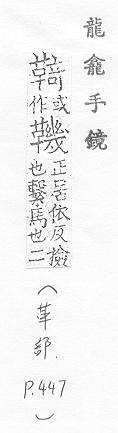 龍龕手鏡
或作
鞿
正居依反撿
也繫馬也二
(革部.
P.447
)